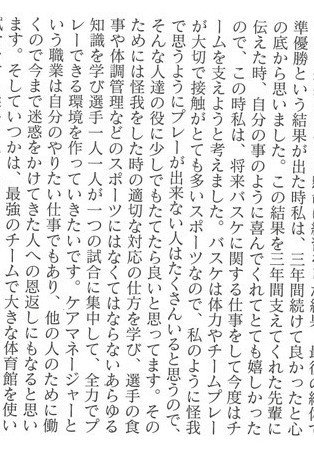 結果、最後の総体で
準優勝という結果が出た時私は、三年間続けて良かったと心
の底から思いました。この結果を三年間支えてくれた先輩に
伝えた時、自分の事のように喜んでくれてとても嬉しかった
ので、この時私は、将来バスケに関する仕事をして今度はチ
ームを支えようと考えました。バスケは体力やチームプレー
が大切で接触がとても多いスポーツなので、私のように怪我
で思うようにプレーが出来ない人はたくさんいると思うので、
そんな人達の役に少しでもたてたら良いと思ってます。その
ためには怪我をした時の適切な対応の仕方を学び、選手の食
事や体調管理などのスポーツにはなくてはならないあらゆる
知識を学び選手一人一人が一つの試合に集中して、全力でプ
レーできる環境を作っていきたいです。ケアマネージャーと
いう職業は自分のやりたい仕事でもあり、他の人のために働
くので今まで迷惑をかけてきた人への恩返しにもなると思い
ます。そしていつかは、最強のチームで大きな体育館を使い